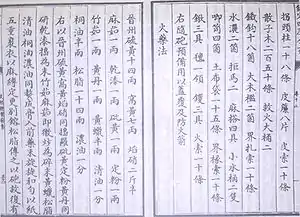 拐頭柱一十八條 皮簾八片 皮索一十條
散子木二百五十條 救火大桶二
鐵鉤十八箇 大木檑二箇 界扎索一十條
水濺二箇 拒馬二 麻搭四具 小水桶二隻
唧筒四箇 土布袋一十五條 界椽索一十條
鍬三具 氊三領 钁三具 火索一十條
右隨砲預備用以蓋覆及防火箭
火藥法
晉州硫黄十四兩 窩黄七兩 焰硝二斤半
麻茹一兩 乾漆一兩 砒黄一兩 定粉一兩
竹茹一兩 黄丹一兩 黄蠟半兩 清油一分
桐油半兩 松脂一十四兩 濃油一分
右以晉州硫黄窩黄焰硝同搗羅砒黄定粉黄丹同
研乾漆搗為末竹茹麻茹即微炒為碎末黄蠟松脂
清油桐油濃油同熬成膏入前藥末旋旋和勻以紙
五重裹衣以麻縛定更別鎔松脂傅之以砲放復有